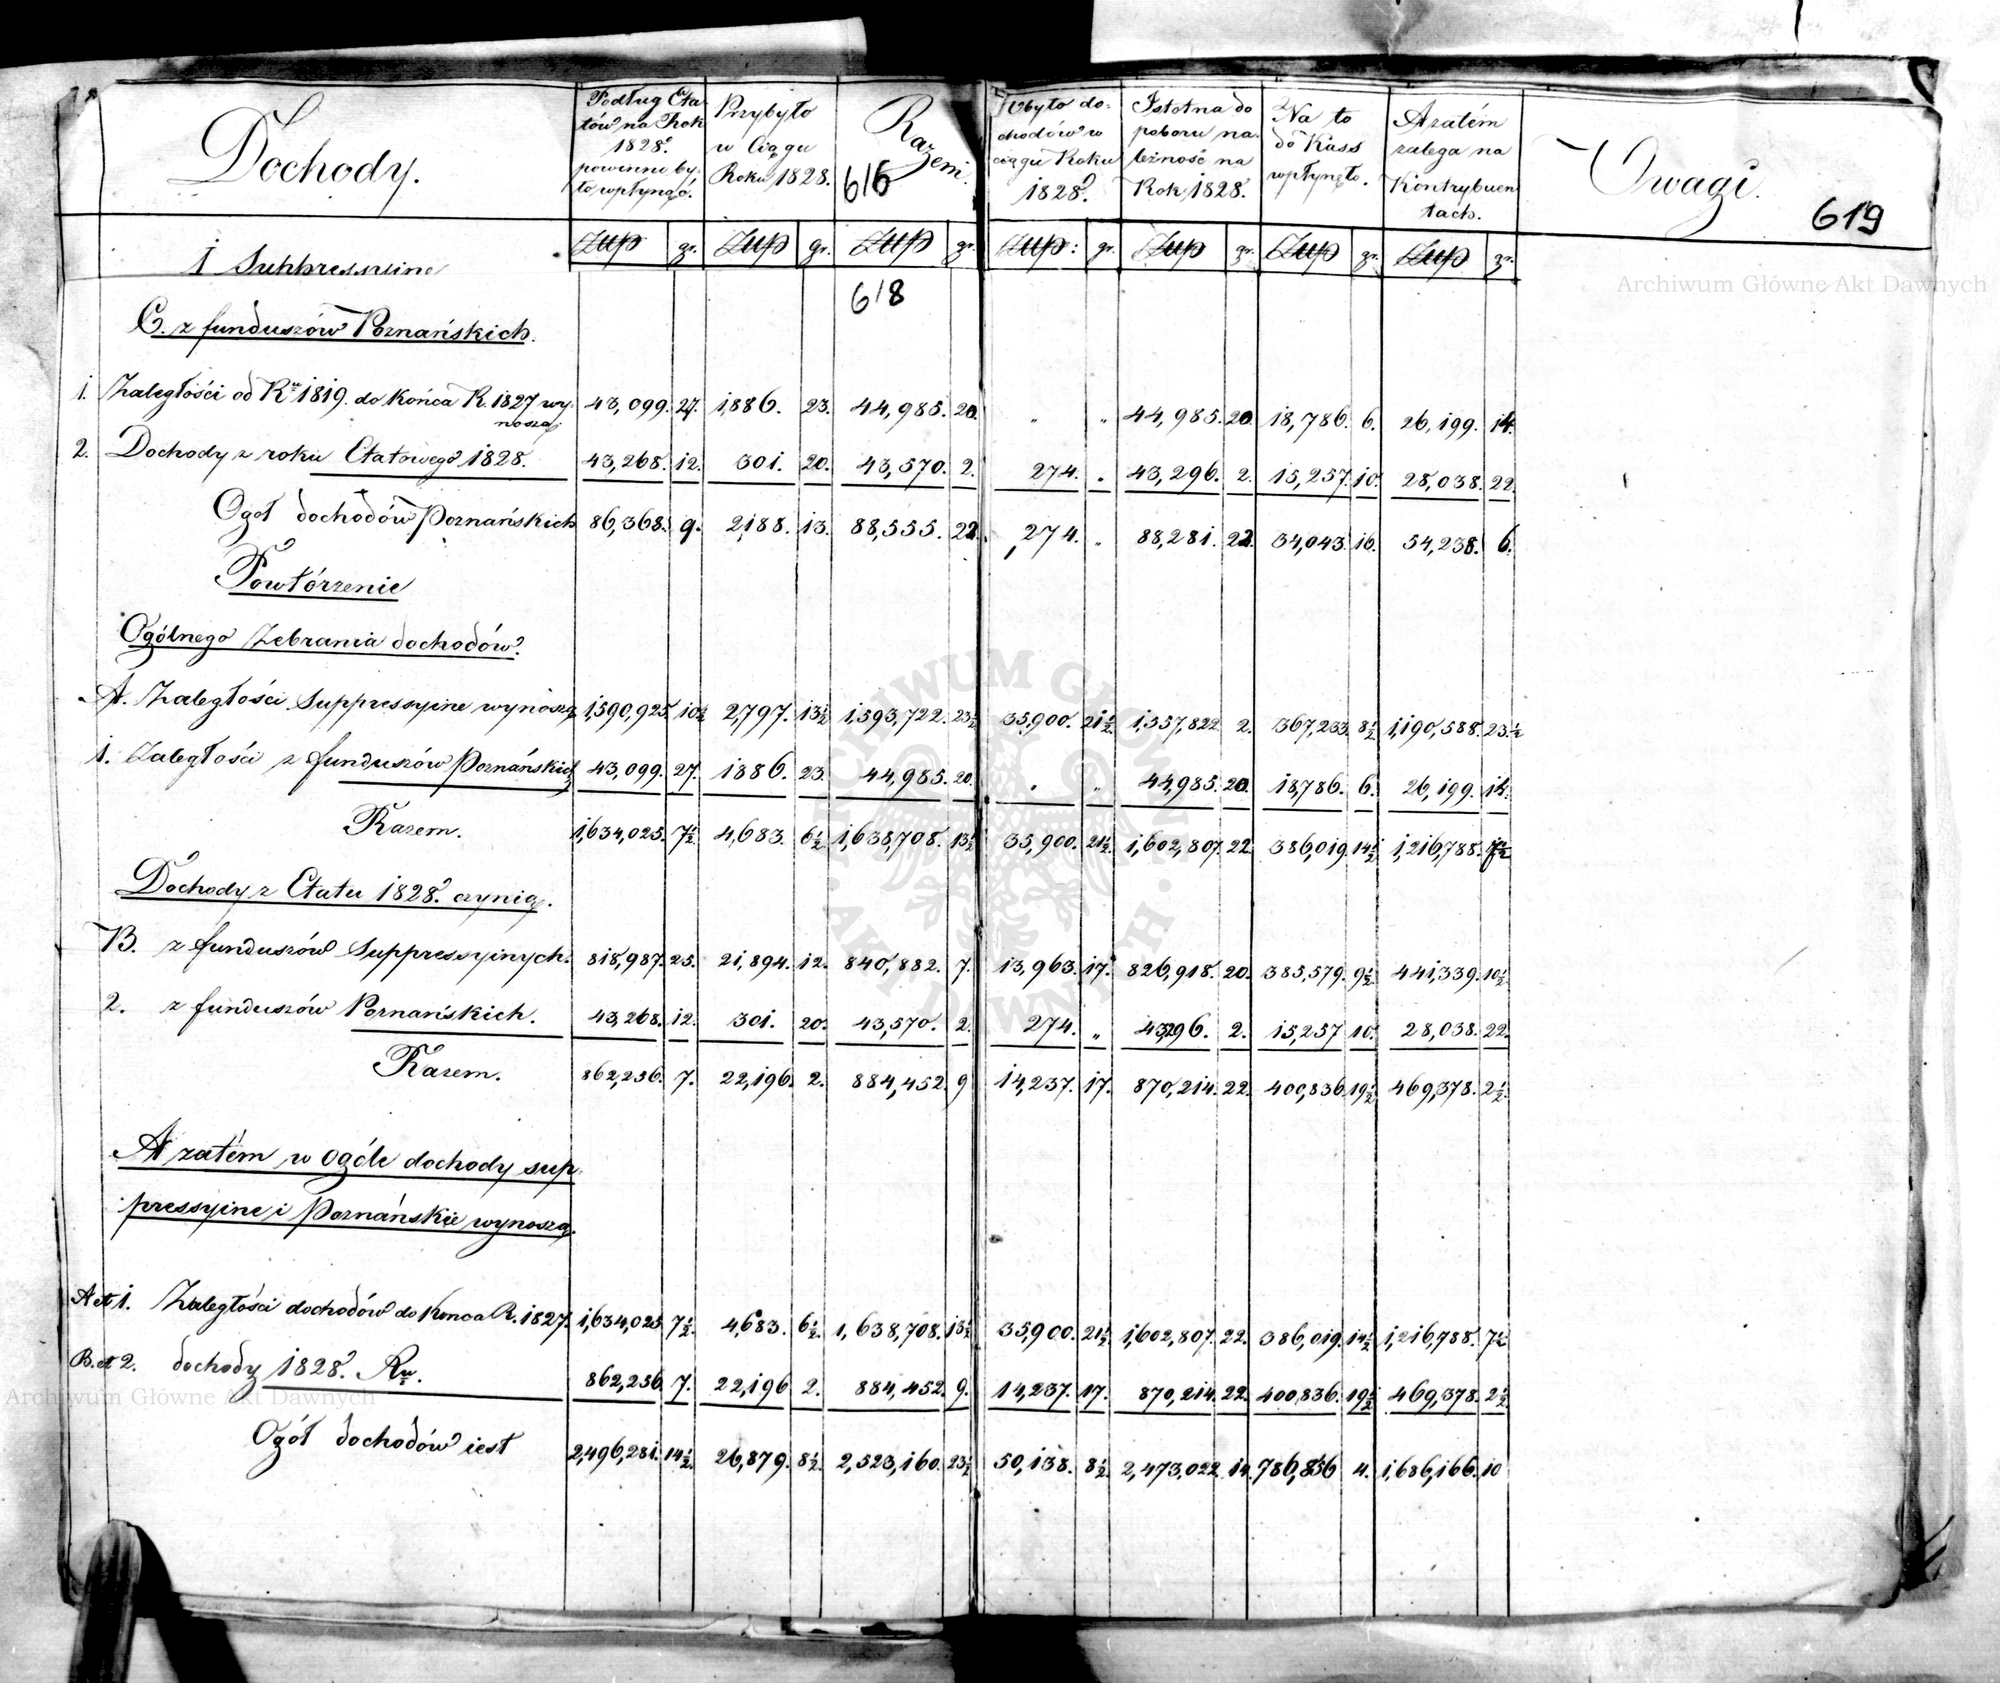 Dochody.
Podług Eta-
tów na Rok
1828.
powinno by-
ło wpłynąć.
Przybyło
w Ciągu
Roku 1828.
Razem.
616
Ubyło do-
chodów w
ciągu Roku
1828.
Istotna do
poboru na-
leżność na
Rok 1828.
Na to
do Kass
wpłynęło.
A zatém
zalega na
Kontrybuen
tach.
Uwagi.
619
Złłp gr. Złłp gr. Złłp gr. Złłp: gr. Złłp gr. Złłp gr. Złłp gr.
I Suppressyine
618
Archiwum Główne Akt Dawnych
C. z funduszów Poznańskich.
1. Zaległości od Ru 1819. do Końca R. 1827 wy- 43,099. 27. 1,886. 23. 44,985. 20. " " 44,985. 20. 18,786. 6. 26,199. 14.
noszą.
2. Dochody z roku Etatowego 1828. 43,268. 12. 301. 20. 43,570. 2. 274. " 43,296. 2. 15,257. 10. 28,038. 22.
Ogół dochodów Poznańskich 86,368. 9. 2,188. 13. 88,555. 22. 274. " 88,281. 22. 34,043. 16. 54,238. 6.
Powtórzenie
Ogólnego Zebrania dochodów.
A. Zaległości Suppressyine wynoszą 1,590,925. 10½ 2,797. 13½ 1,593,722. 23½ 35,900. 21½ 1,557,822. 2. 367,233. 8½ 1,190,588. 23½
1. Zaległości z funduszów Poznańskich 43,099. 27. 1886. 23. 44,985. 20. . " 44,985. 20. 18,786. 6. 26,199. 14.
Razem. 1,634,025. 7½ 4,683. 6½ 1,638,708. 13½ 35,900. 21½ 1,602,807. 22. 386,019. 14½ 1,216,788. 7½
Dochody z Etatu 1828. czynią.
B. z funduszów Suppressyinych. 818,987. 25. 21,894. 12. 840,882. 7. 13,963. 17. 826,918. 20. 385,579. 9½ 441,339. 10½
2. z funduszów Poznańskich. 43,268. 12. 301. 20. 43,570. 2. 274. " 43,296. 2. 15,257 10. 28,038. 22.
Razem. 862,256. 7. 22,196. 2. 884,452. 9 14,237. 17. 870,214. 22. 400,836. 19½ 469,378. 2½
A zatém w ogóle dochody sup-
pressyine i Poznańskie wynoszą.
A et 1. Zaległości dochodów do Konca R. 1827. 1,634,025 7½ 4,683. 6½ 1,638,708. 13½ 35,900. 21½ 1,602,807. 22. 386,019. 14½ 1,216,788. 7½
B. et 2. dochody 1828. Ru. 862,256 7. 22,196 2. 884,452. 9. 14,237. 17. 870,214. 22. 400,836. 19½ 469,378. 2½
Archiwum Główne Akt Dawnych
Ogół dochodów iest 2,496,281. 14½ 26,879. 8½ 2,523,160. 23½ 50,138. 8½ 2,473,022 14. 786,856 4. 1,686,166. 10
ARCHIWUM GŁÓWNE
AKT DAWNYCH